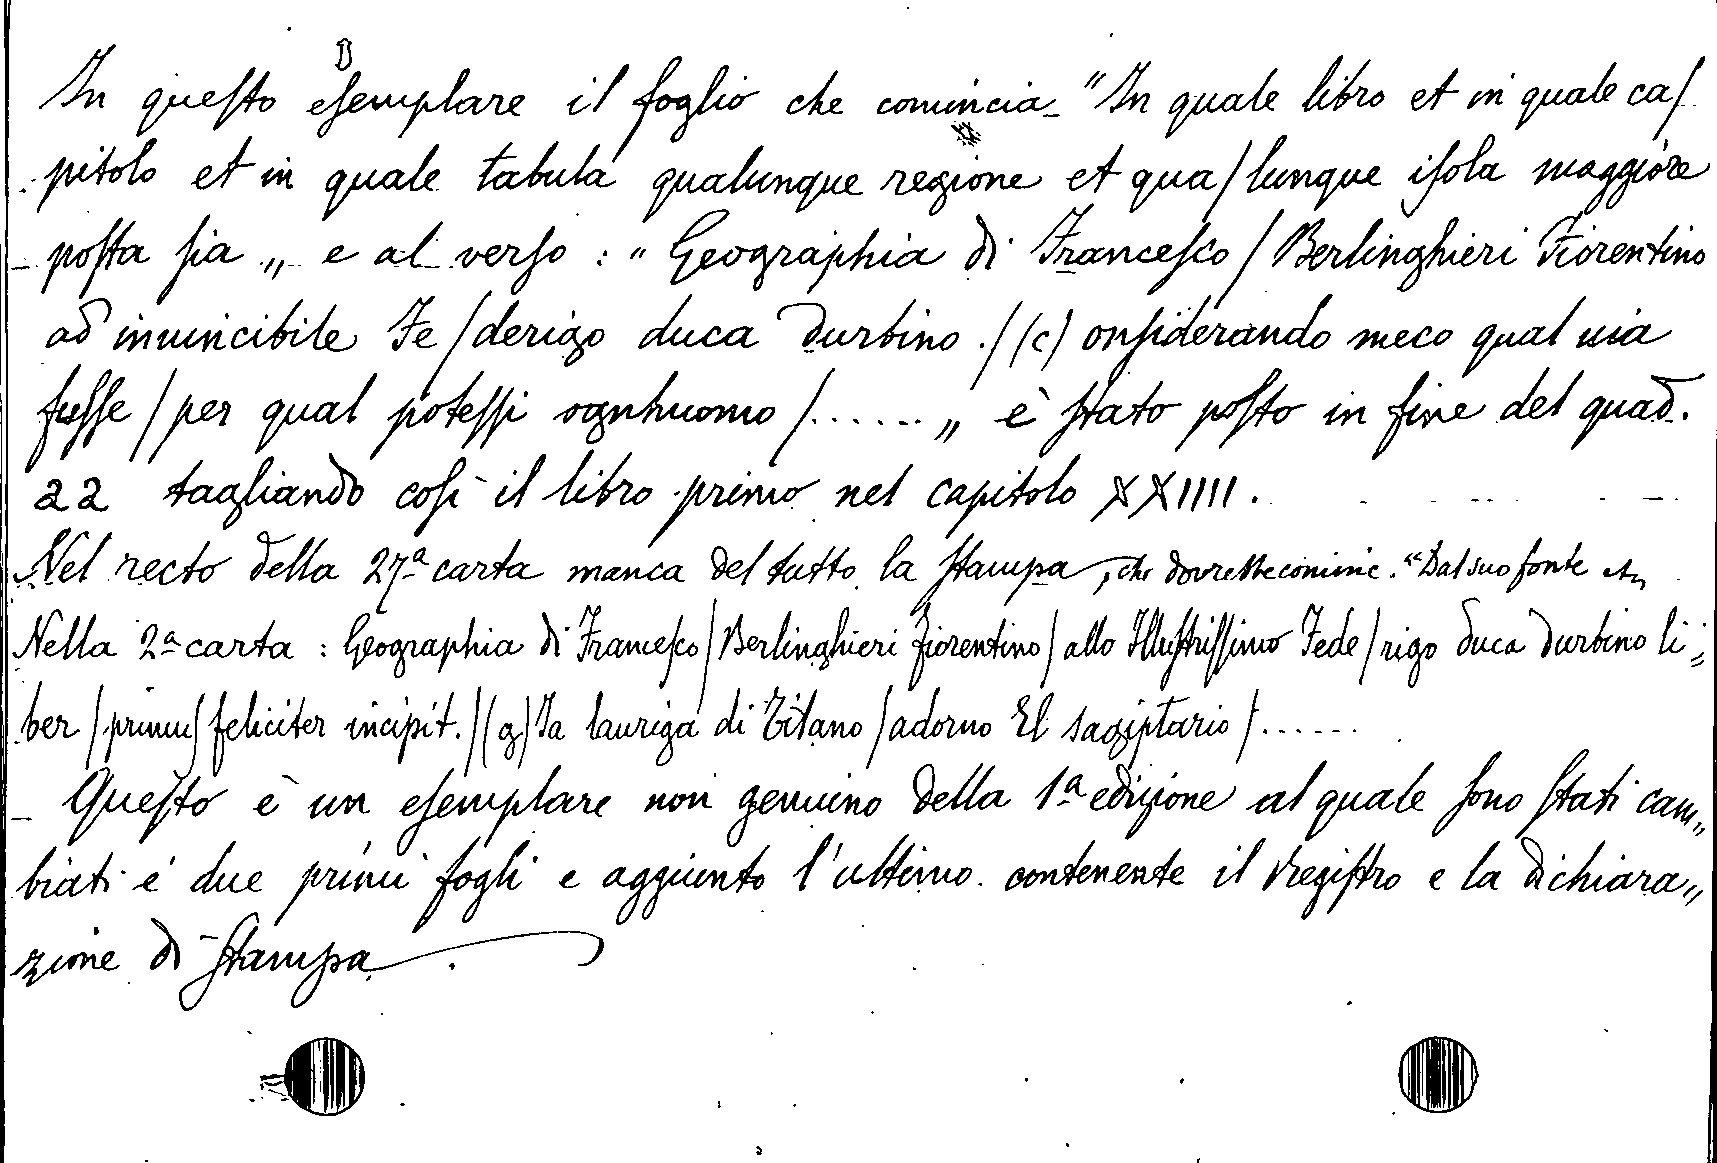 In questo esemplare il foglio che comincia "In quale libro et in quale ca/
pitolo et in quale tabula qualunque regione et qua/lunque isola maggiore
posta sia „ e al verso : " Geographia di Francesco / Berlinghieri Fiorentino
ad inuincibile Fe/derigo duca durbino ./(c) onsiderando meco qual uia
fusse / per qual potessi ognhuomo /...... „ è stato posto in fine del quad.
22 tagliando così il libro primo nel capitolo XXIIII.
Nel recto della 27ª carta manca del tutto la stampa, che dovrebbe cominc. "Dal suo fonte
Nella 2ª carta : Geographia di Francesco/Berlinghieri fiorentino/ allo Illustrissimo Fede/rigo duca durbino li„
ber / primus feliciter incipit./(g)Ia lauriga di Titano /adorno El sagiptario /......
Questo è un esemplare non genuino della 1ª edizione al quale sono stati cam„
biati i due primi fogli e aggiunto l'ultimo contenente il registro e la dichiara„
zione di stampa